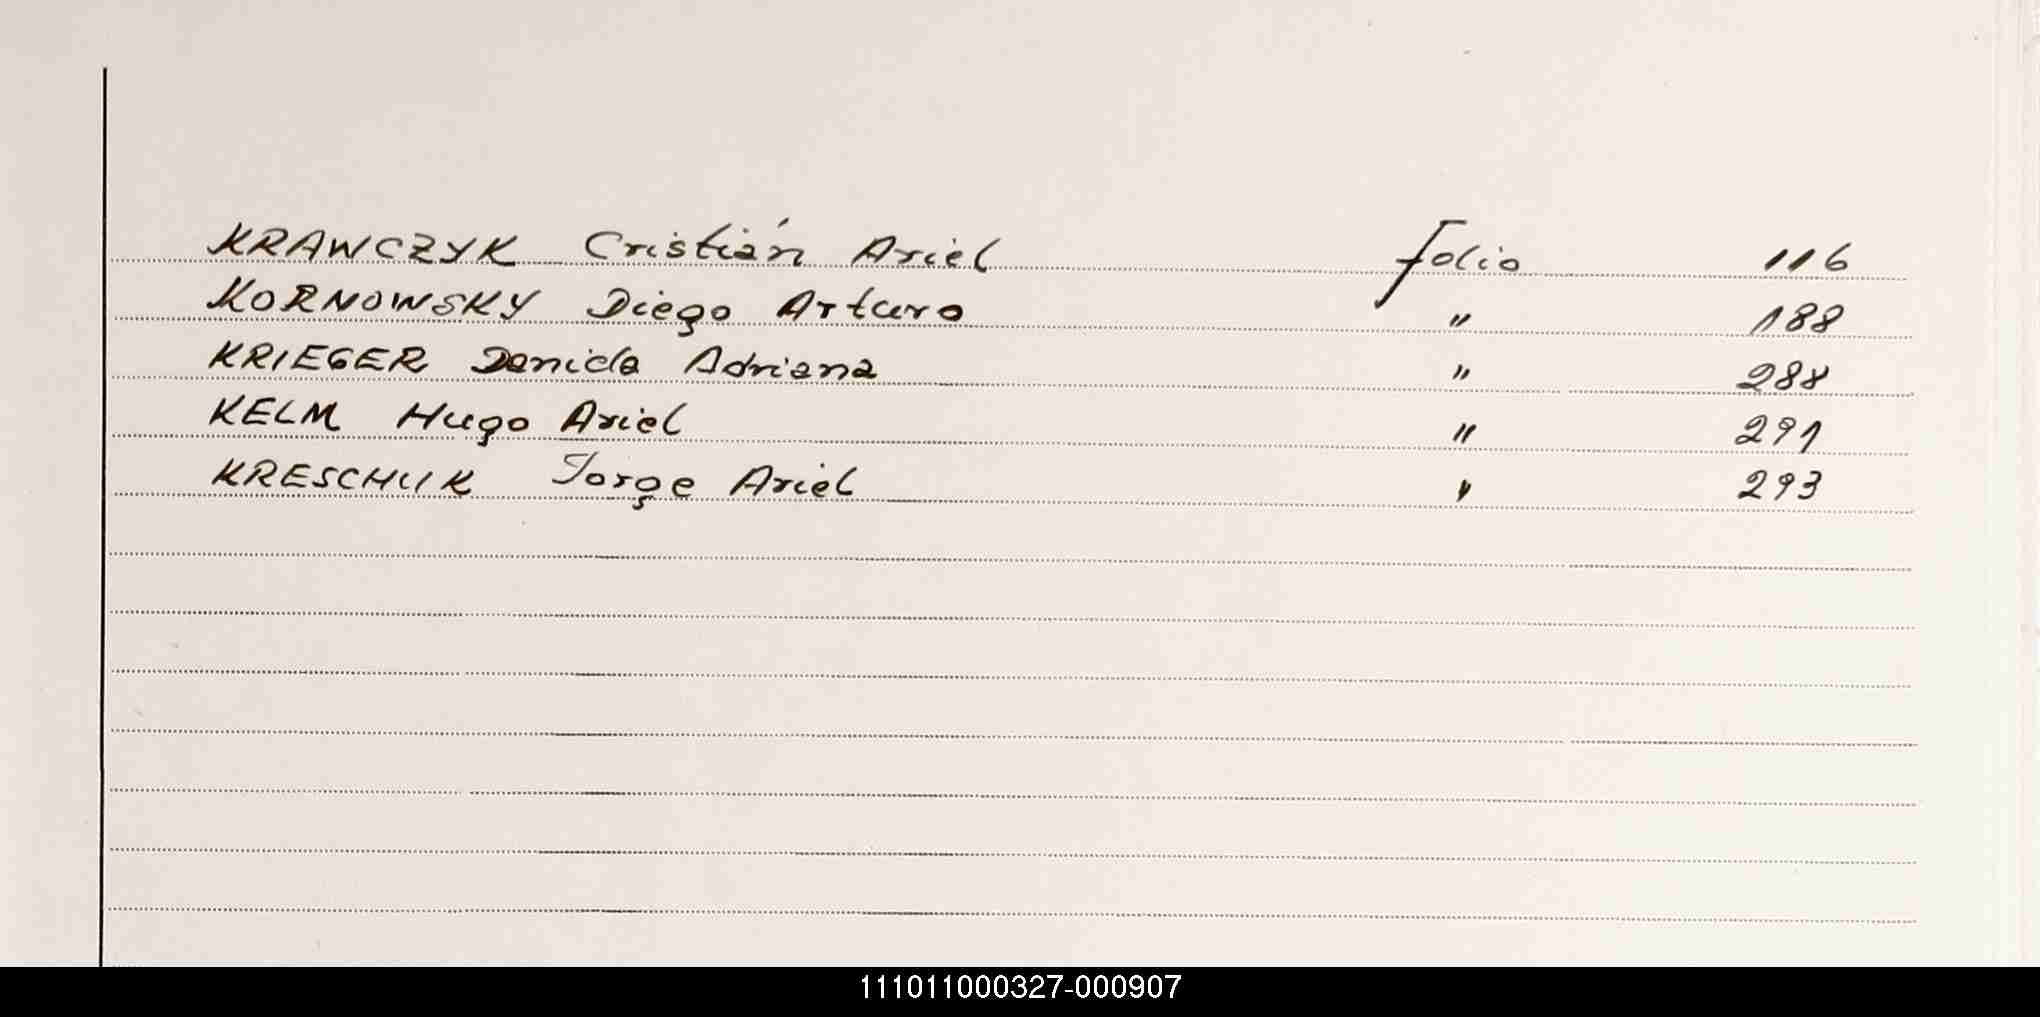 KRAWCZYK Cristián Ariel folio 116
KORNOWSKY Diego Arturo " 188
KRIEGER Daniela Adriana " 288
KELM Hugo Ariel " 291
KRESCHUK Jorge Ariel " 293
111011000327-000907